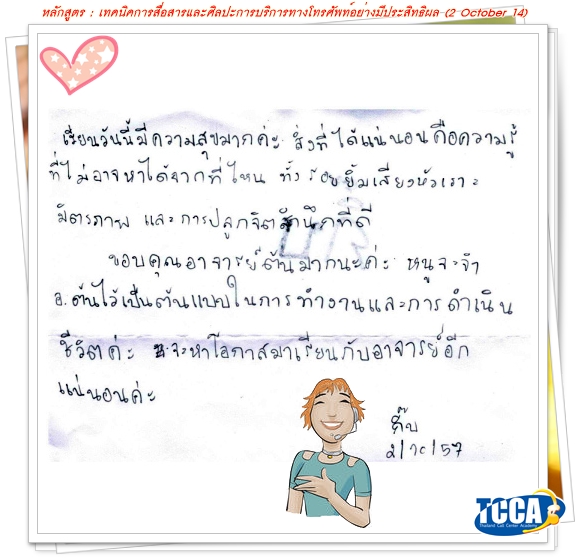 หลักสูตร : เทคนิคการสื่อสารและศิลปะการบริการทางโทรศัพท์อย่างมีประสิทธิผล (2 October 14)
เรียนวันนี้มีความสุขมากค่ะ สิ่งที่ได้แน่นอนคือความรู้
ที่ไม่อาจหาได้จากที่ไหน ทั้งรอยยิ้มเสียงหัวเราะ
มิตรภาพ และการปลูกจิตสำนึกที่ดี
ขอบคุณอาจารย์ต้นมากนะค่ะ หนูจะจำ
อ.ต้นไว้เป็นต้นแบบในการทำงานและการดำเนิน
ชีวิตค่ะ จะหาโอกาสมาเรียนกับอาจารย์อีก
แน่นอนค่ะ
2/10/57
TCCA
Thailand Call Center Academy